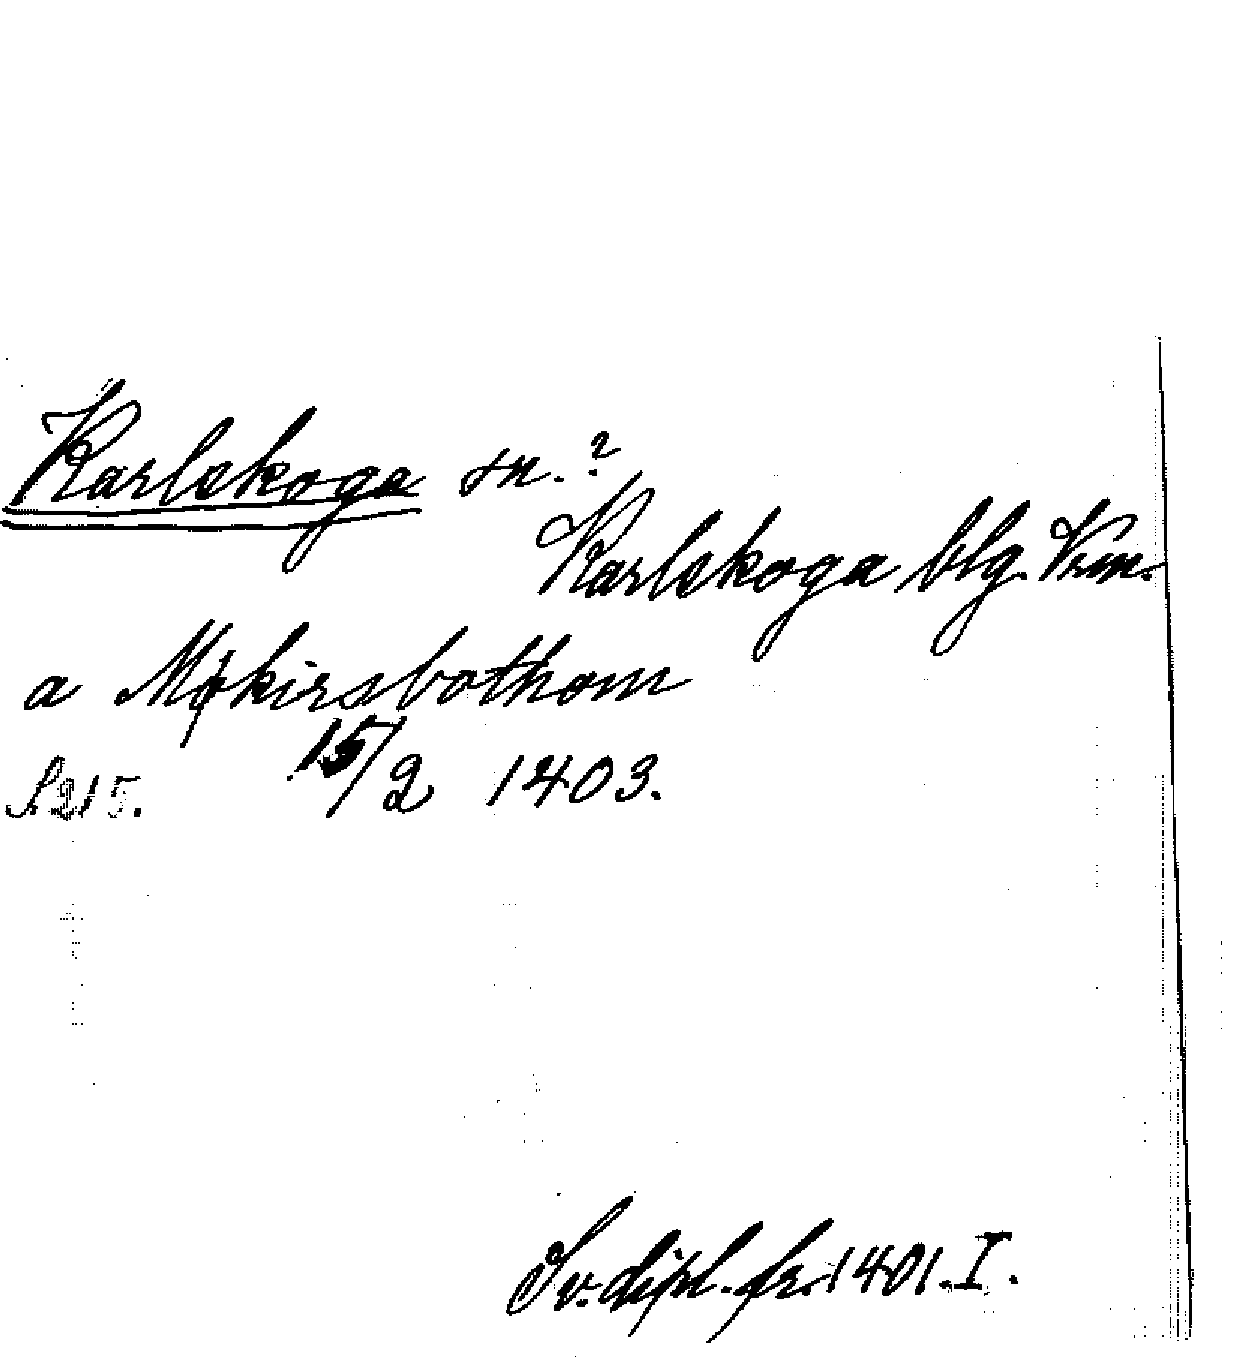 Karlskoga sn.?
Karlskoga blg. Vrm.
a Møkirsbothom
S. 215. 15/2 1403.
Sv. dipl. fr. 1401. I.